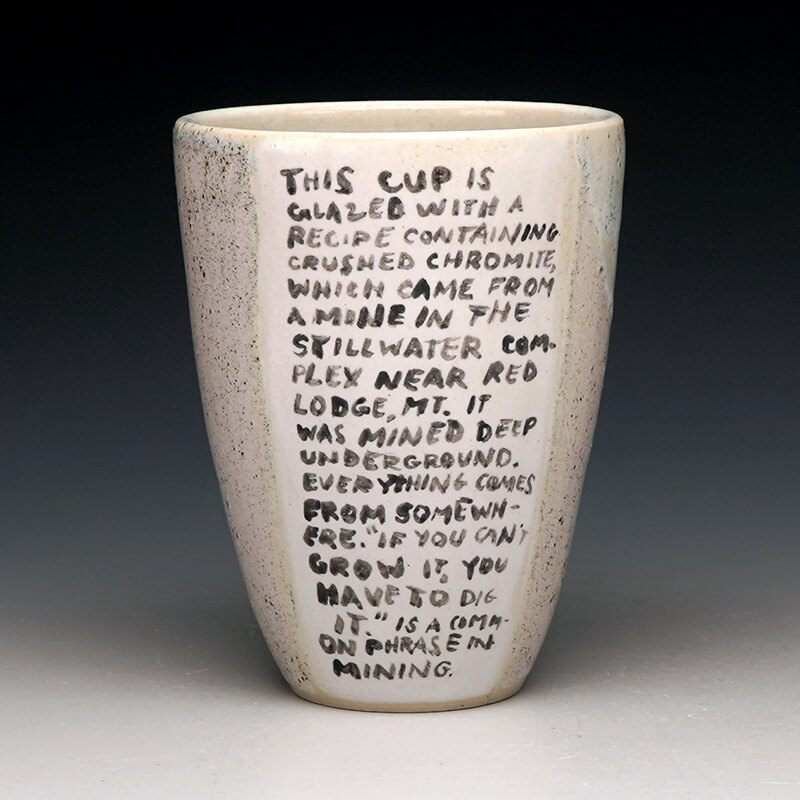 THIS CUP IS
GLAZED WITH A
RECIPE CONTAINING
CRUSHED CHROMITE,
WHICH CAME FROM
A MINE IN THE
STILLWATER COM-
PLEX NEAR RED
LODGE, MT. IT
WAS MINED DEEP
UNDERGROUND.
EVERYTHING COMES
FROM SOMEWH-
ERE. "IF YOU CAN'T
GROW IT, YOU
HAVE TO DIG
IT." IS A COMM-
ON PHRASE IN
MINING.